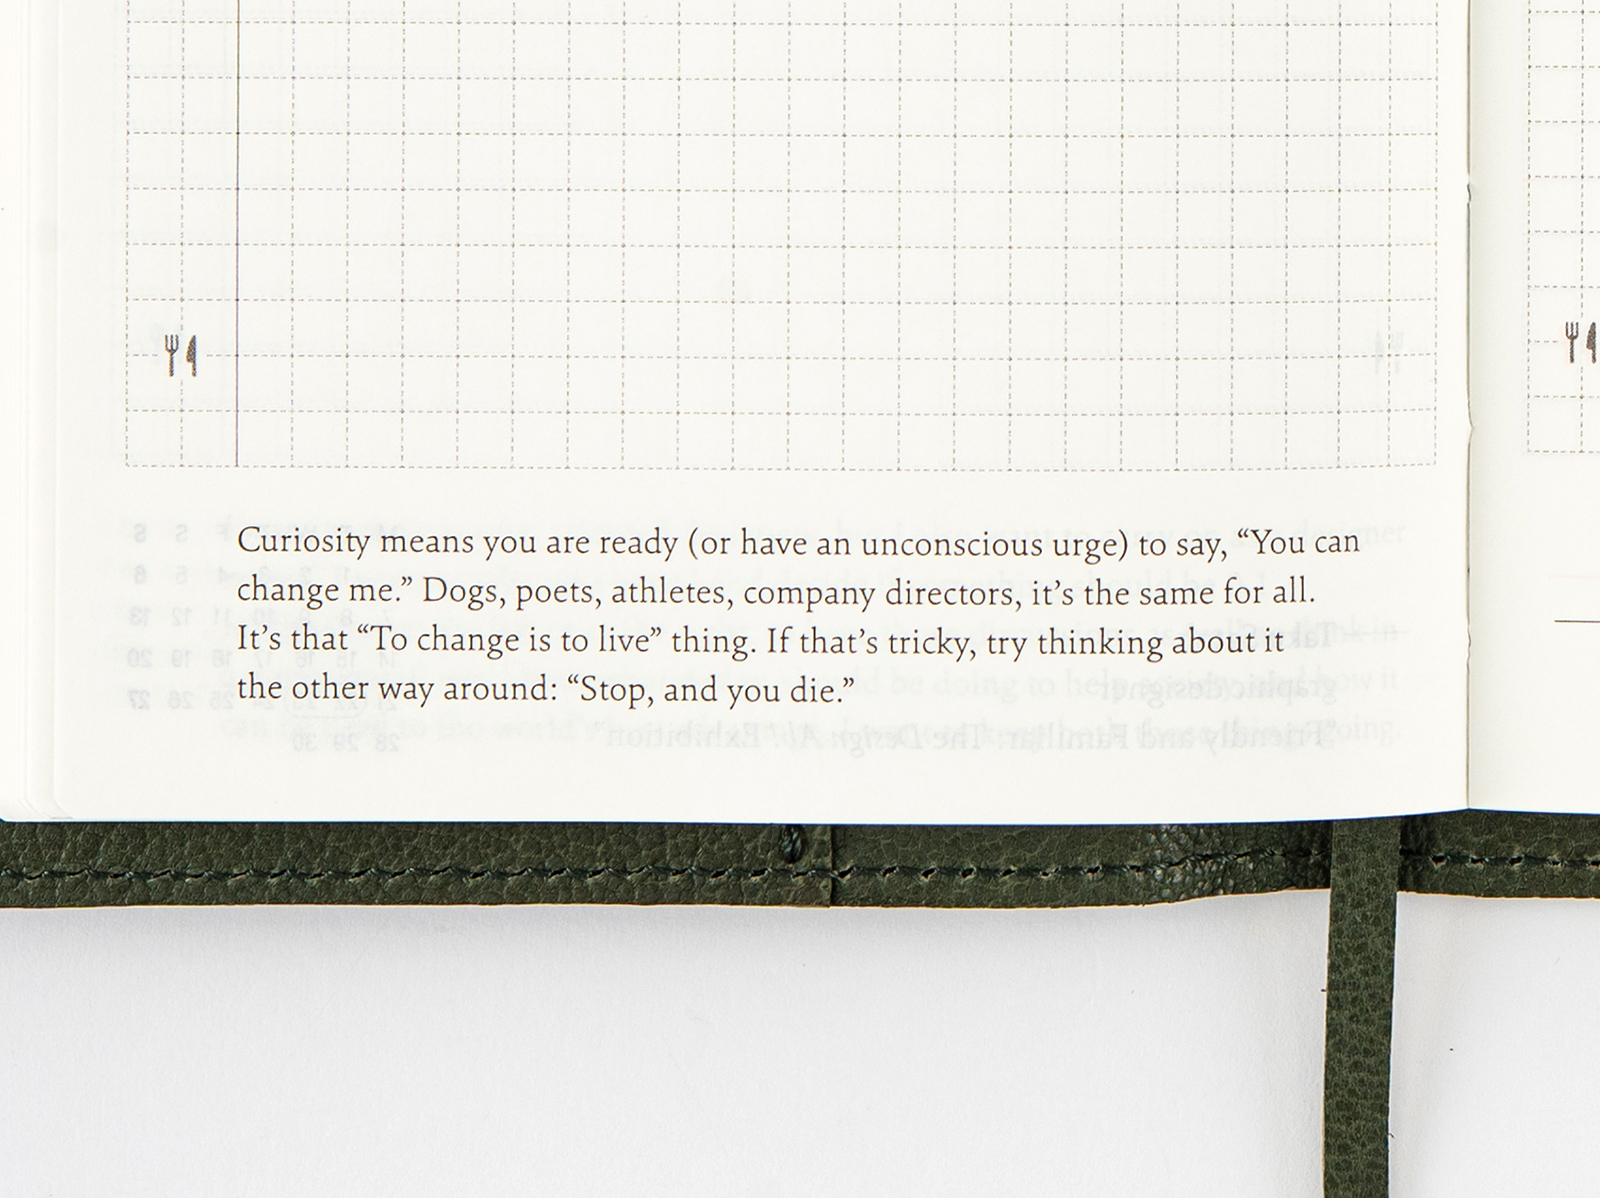 Curiosity means you are ready (or have an unconscious urge) to say, “You can
change me.” Dogs, poets, athletes, company directors, it’s the same for all.
It’s that “To change is to live” thing. If that’s tricky, try thinking about it
the other way around: “Stop, and you die.”